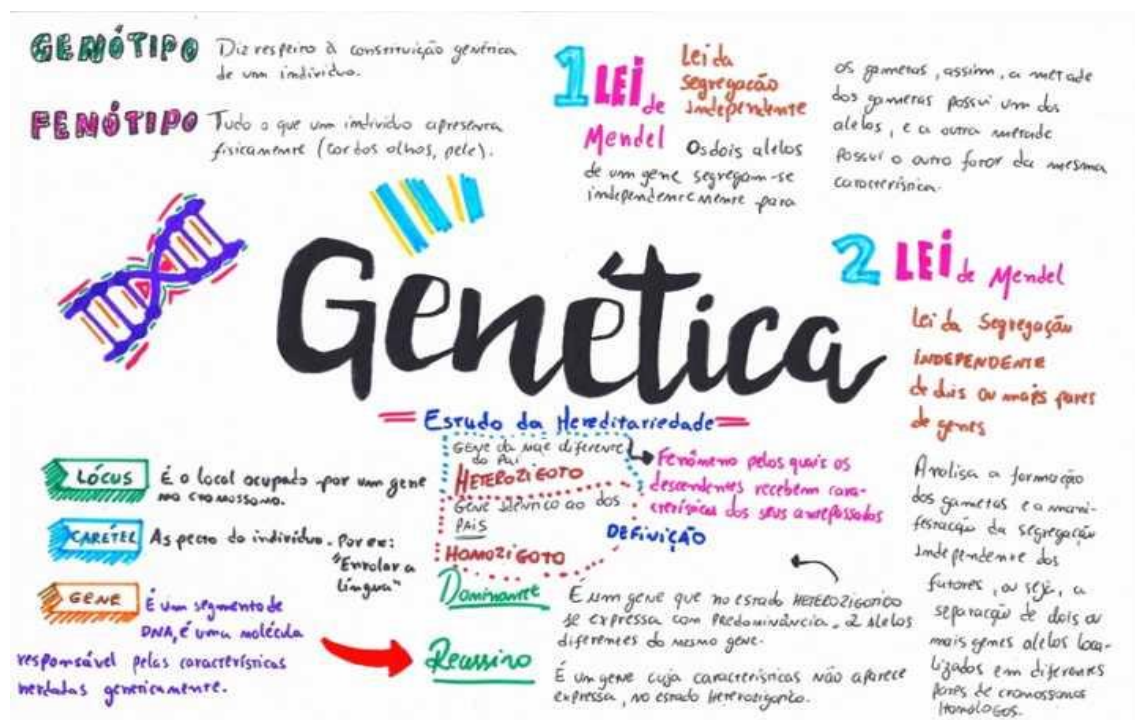 GENÓTIPO Diz respeiro à constituição genérica
de um indivíduo.
FENÓTIPO Tudo o que um indivíduo apresenra
fisicamente (cor dos olhos, pele).
1 LEI de Mendel
Lei da
segregação
Independente
Os dois alelos
de um gene segregam-se
independentemente para
os gametas, assim, a metade
dos gametas possui um dos
alelos, e a outra metade
possui o outro fator da mesma
característica.
2 LEI de Mendel
Lei da Segregação
INDEPENDENTE
de dois ou mais pares
de genes
Analisa a formação
dos gametas e a mani-
festação da segregação
independente dos
fatores, ou seja, a
separação de dois ou
mais genes alelos loca-
lizados em diferentes
pares de cromossomos
Homólogos.
Genética
Estudo da Hereditariedade
Gene da mãe diferente
do Pai
HETEROZIGOTO
Gene idêntico ao dos
PAIS
HOMOZIGOTO
Fenômeno pelos quais os
descendentes recebem cara-
cterísticas dos seus antepassados
DEFINIÇÃO
LÓCUS É o local ocupado por um gene
no cromossomo.
CARÉTEL Aspecto do indivíduo. Por ex:
"Enrolar a
língua"
GENE É um segmento de
DNA, é uma molécula
responsável pelas características
herdadas geneticamente.
Dominante É um gene que no estado HETEROZIGOTICO
se expressa com PREDOMINÂNCIA, 2 alelos
diferentes do mesmo gene.
Recessivo É um gene cuja características não aparece
expressa, no estado Heterozigonto.